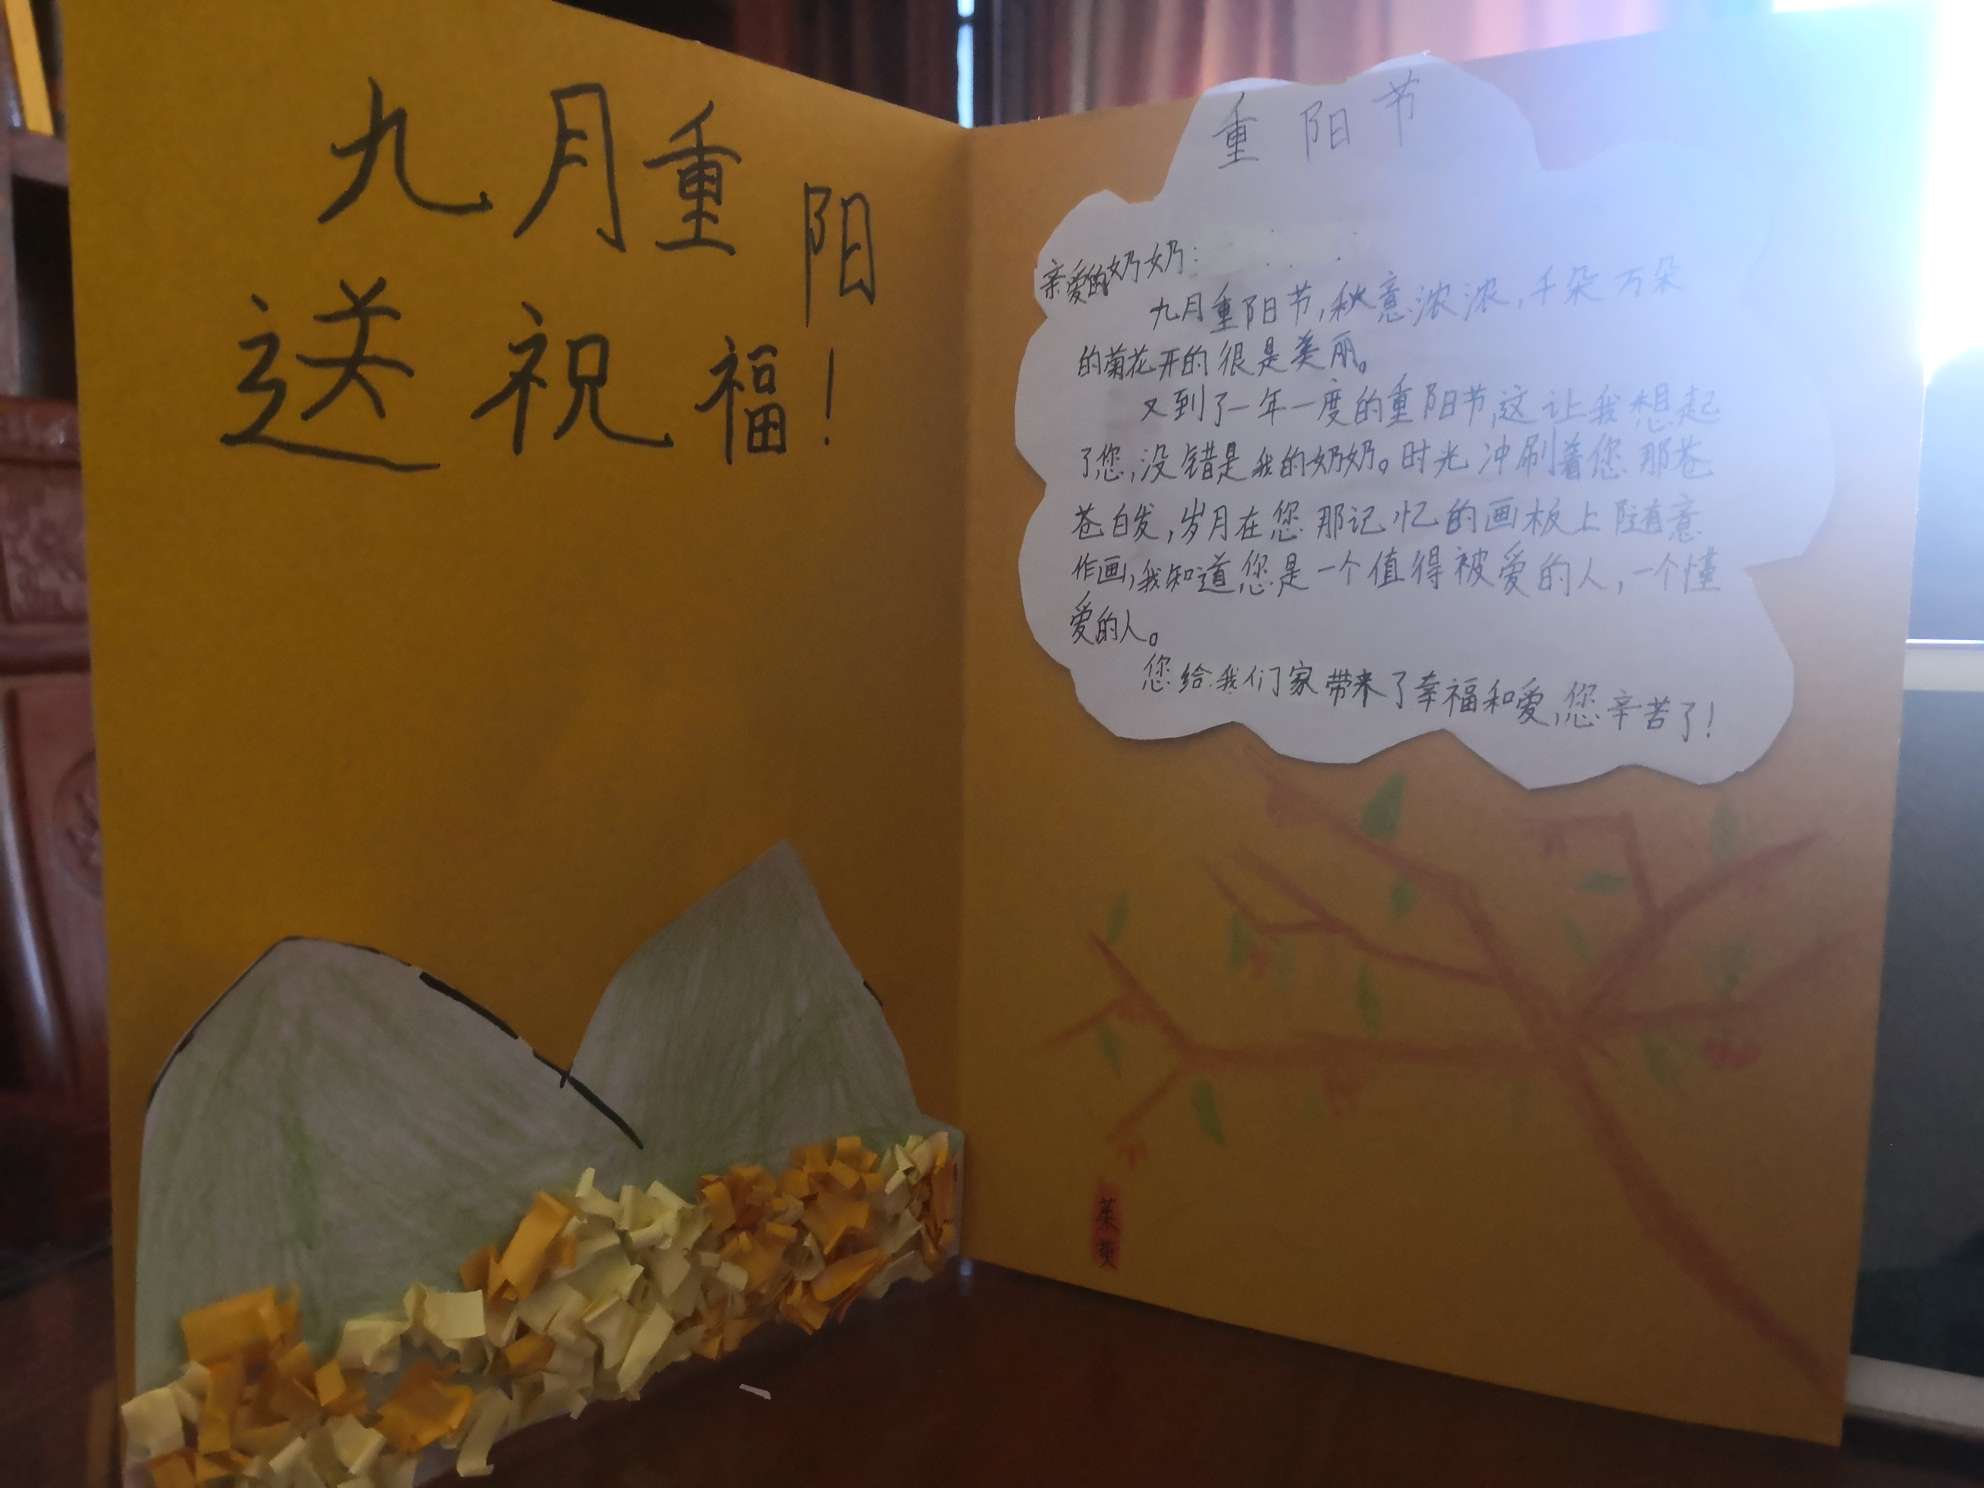 九月重阳
送祝福！
重阳节
亲爱的奶奶：
九月重阳节，秋意浓浓，千朵万朵
的菊花开的很是美丽。
又到了一年一度的重阳节，这让我想起
了您，没错是我的奶奶。时光冲刷着您那苍
苍白发，岁月在您那记忆的画板上随意
作画，我知道，您是一个值得被爱的人，一个懂
爱的人。
您给我们家带来了幸福和爱，您辛苦了！
茱萸